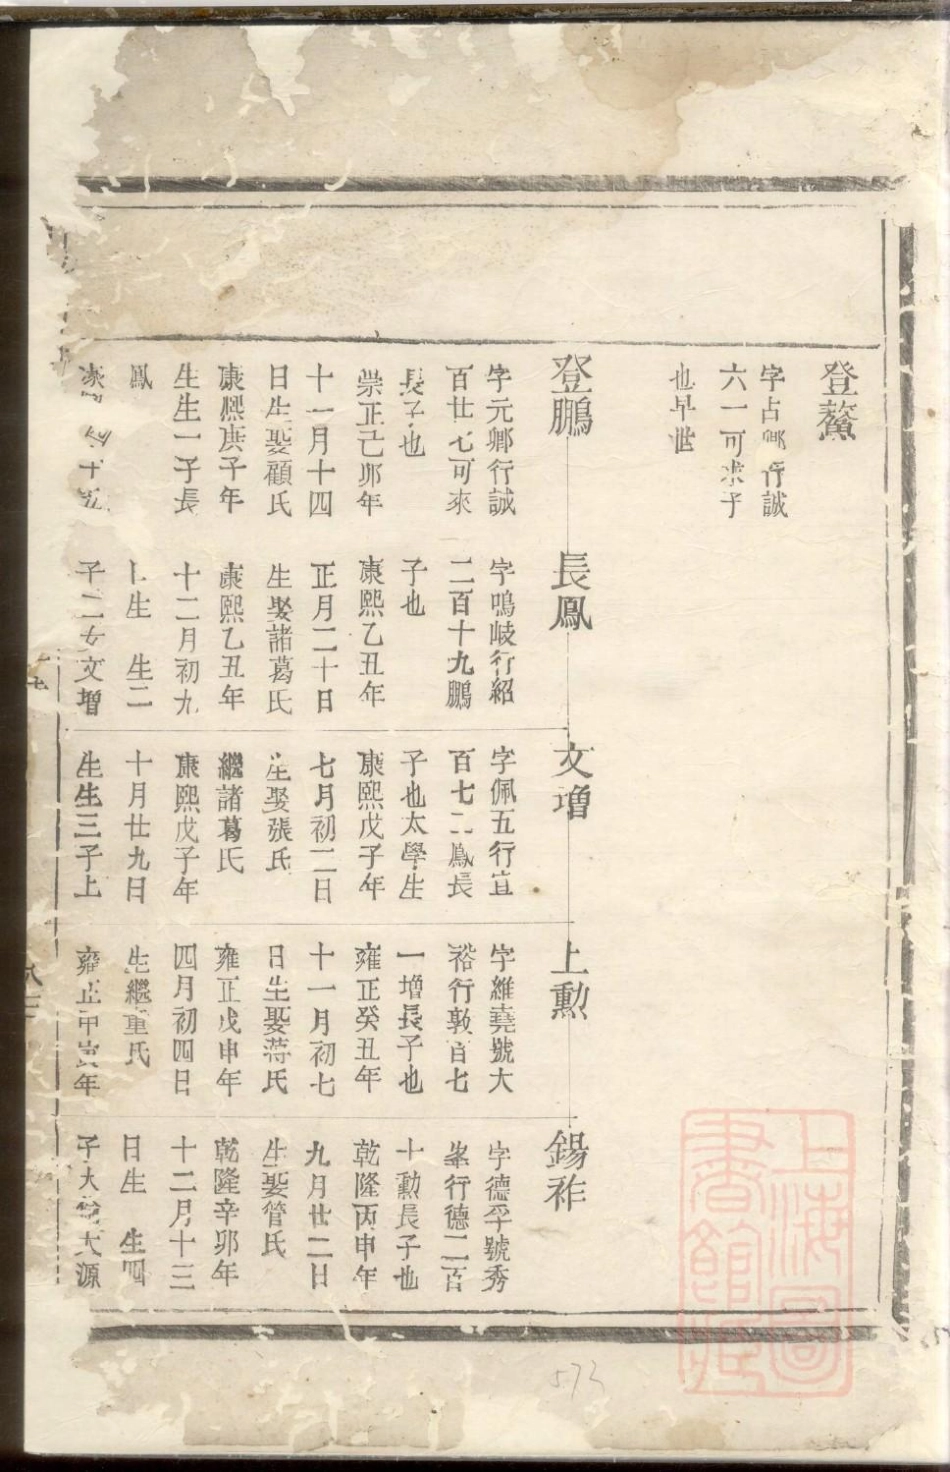 登鰲
字占卿行誠
六一可來子
也早世
登鵬
字元卿行誠
百廿七可來
長子也
崇正己卯年
十一月十四
日生娶顧氏
康熙庚子年
生生一子長
鳳
長鳳
字鳴岐行紹
二百十九鵬
子也
康熙乙丑年
正月二十日
生娶諸葛氏
康熙乙丑年
十二月初九
生二
子二女文增
文增
字佩五行宜
百七二鳳長
子也太學生
康熙戊子年
七月初二日
生娶張氏
繼諸葛氏
康熙戊子年
十月廿九日
生生三子上
上勲
字維堯號大
裕行敦百七
一增長子也
雍正癸丑年
十一月初七
日生娶蔣氏
雍正戊申年
四月初四日
生繼童氏
雍正甲寅年
錫祚
字德孚號秀
峯行德二百
十勲長子也
乾隆丙申年
九月廿二日
生娶管氏
乾隆辛卯年
十二月十三
日生 生四
子大 大源
上海圖
書館藏
573